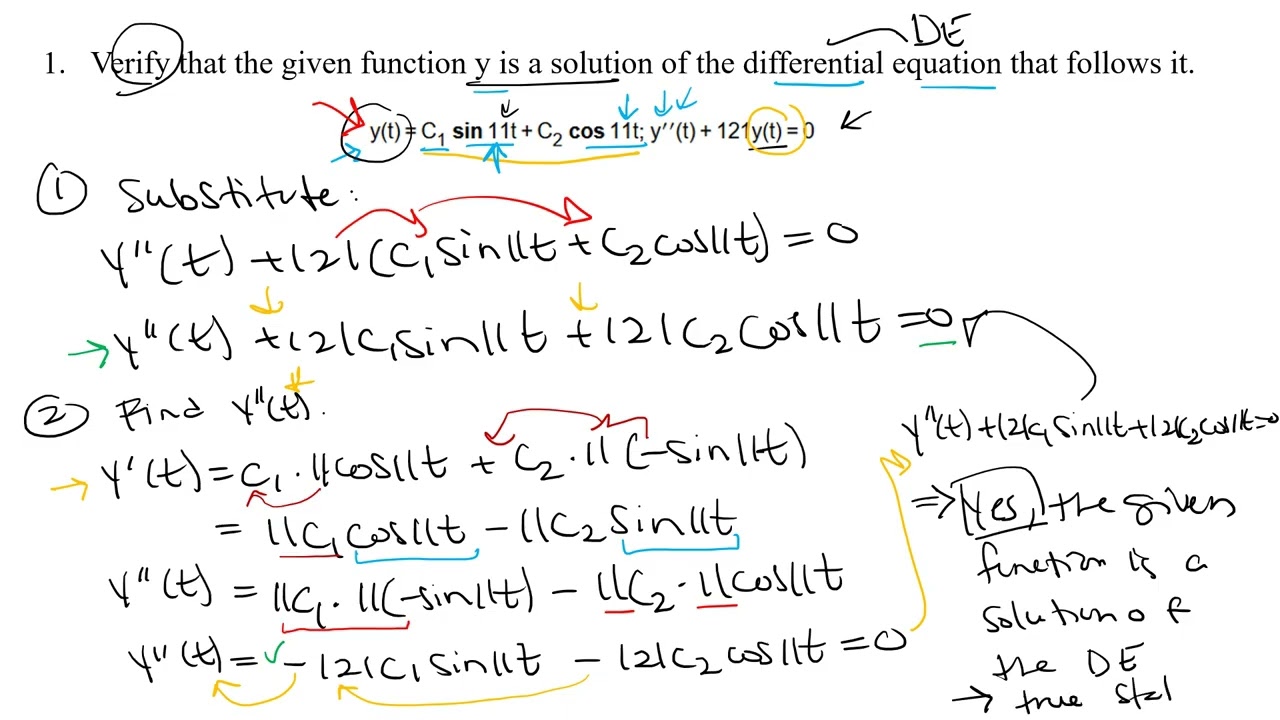 DE
1. Verify that the given function y is a solution of the differential equation that follows it.
y(t) = C₁ sin 11t + C₂ cos 11t; y''(t) + 121y(t) = 0
① Substitute:
y''(t) + 121(C₁sin11t + C₂cos11t) = 0
y''(t) + 121C₁sin11t + 121C₂cos11t = 0
② Find y''(t).
y'(t) = C₁·11cos11t + C₂·11(-sin11t)
= 11C₁cos11t - 11C₂sin11t
y''(t) = 11C₁·11(-sin11t) - 11C₂·11cos11t
y''(t) = -121C₁sin11t - 121C₂cos11t = 0
y''(t) + 121C₁sin11t + 121C₂cos11t = 0
⇒ Yes, the given
function is a
solution of
the DE
→ true stat